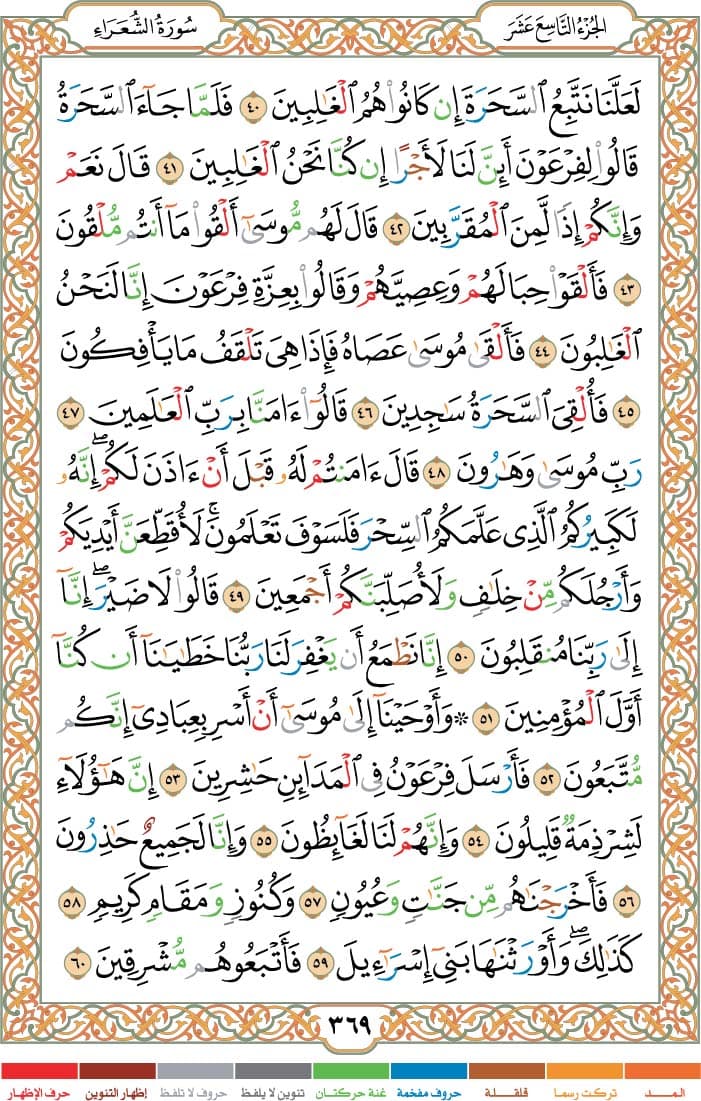 الجُزْءُ التَّاسِعَ عَشَرَ
سُورَةُ الشُّعَرَاءِ
لَعَلَّنَا نَتَّبِعُ ٱلسَّحَرَةَ إِن كَانُوا۟ هُمُ ٱلْغَٰلِبِينَ ٤٠ فَلَمَّا جَآءَ ٱلسَّحَرَةُ
قَالُوا۟ لِفِرْعَوْنَ أَئِنَّ لَنَا لَأَجْرًا إِن كُنَّا نَحْنُ ٱلْغَٰلِبِينَ ٤١ قَالَ نَعَمْ
وَإِنَّكُمْ إِذًا لَّمِنَ ٱلْمُقَرَّبِينَ ٤٢ قَالَ لَهُم مُّوسَىٰٓ أَلْقُوا۟ مَآ أَنتُم مُّلْقُونَ
٤٣ فَأَلْقَوْا۟ حِبَالَهُمْ وَعِصِيَّهُمْ وَقَالُوا۟ بِعِزَّةِ فِرْعَوْنَ إِنَّا لَنَحْنُ
ٱلْغَٰلِبُونَ ٤٤ فَأَلْقَىٰ مُوسَىٰ عَصَاهُ فَإِذَا هِىَ تَلْقَفُ مَا يَأْفِكُونَ
٤٥ فَأُلْقِىَ ٱلسَّحَرَةُ سَٰجِدِينَ ٤٦ قَالُوٓا۟ ءَامَنَّا بِرَبِّ ٱلْعَٰلَمِينَ ٤٧
رَبِّ مُوسَىٰ وَهَٰرُونَ ٤٨ قَالَ ءَامَنتُمْ لَهُۥ قَبْلَ أَنْ ءَاذَنَ لَكُمْ ۖ إِنَّهُۥ
لَكَبِيرُكُمُ ٱلَّذِى عَلَّمَكُمُ ٱلسِّحْرَ فَلَسَوْفَ تَعْلَمُونَ ۚ لَأُقَطِّعَنَّ أَيْدِيَكُمْ
وَأَرْجُلَكُم مِّنْ خِلَٰفٍ وَلَأُصَلِّبَنَّكُمْ أَجْمَعِينَ ٤٩ قَالُوا۟ لَا ضَيْرَ ۖ إِنَّآ
إِلَىٰ رَبِّنَا مُنقَلِبُونَ ٥٠ إِنَّا نَطْمَعُ أَن يَغْفِرَ لَنَا رَبُّنَا خَطَٰيَٰنَآ أَن كُنَّآ
أَوَّلَ ٱلْمُؤْمِنِينَ ٥١ ۞ وَأَوْحَيْنَآ إِلَىٰ مُوسَىٰٓ أَنْ أَسْرِ بِعِبَادِىٓ إِنَّكُم
مُّتَّبَعُونَ ٥٢ فَأَرْسَلَ فِرْعَوْنُ فِى ٱلْمَدَآئِنِ حَٰشِرِينَ ٥٣ إِنَّ هَٰٓؤُلَآءِ
لَشِرْذِمَةٌ قَلِيلُونَ ٥٤ وَإِنَّهُمْ لَنَا لَغَآئِظُونَ ٥٥ وَإِنَّا لَجَمِيعٌ حَٰذِرُونَ
٥٦ فَأَخْرَجْنَٰهُم مِّن جَنَّٰتٍ وَعُيُونٍ ٥٧ وَكُنُوزٍ وَمَقَامٍ كَرِيمٍ ٥٨
كَذَٰلِكَ ۖ وَأَوْرَثْنَٰهَا بَنِىٓ إِسْرَٰٓءِيلَ ٥٩ فَأَتْبَعُوهُم مُّشْرِقِينَ ٦٠
٣٦٩
المــــد تركت رسما قلقــلة حروف مفخمة غنة حركتـان تنوين لا يلفظ حروف لا تلفظ إظهار التنوين حرف الإظهار